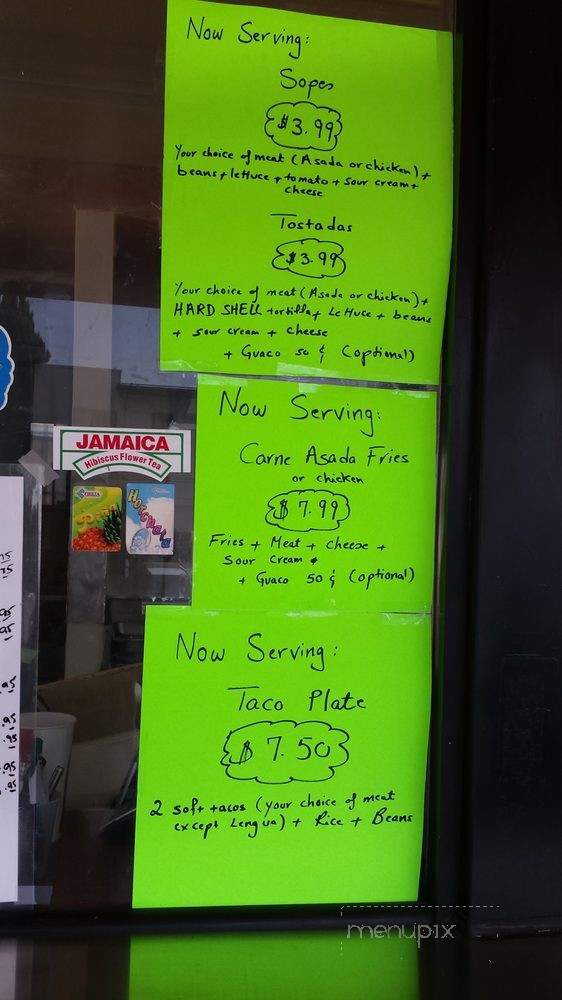 Now Serving:
Sopes
$3.99
Your choice of meat (Asada or chicken) +
beans + lettuce + tomato + sour cream +
cheese
Tostadas
$3.99
Your choice of meat (Asada or chicken) +
HARD SHELL tortilla + Lettuce + beans
+ sour cream + cheese
+ Guaco 50 ¢ (optional)
Now Serving:
Carne Asada Fries
or chicken
$7.99
Fries + Meat + cheese +
sour cream +
+ Guaco 50 ¢ (optional)
JAMAICA
Hibiscus Flower Tea
Horchata
Now Serving:
Taco Plate
$7.50
2 soft tacos (your choice of meat
except Lengua) + Rice + Beans
menupix